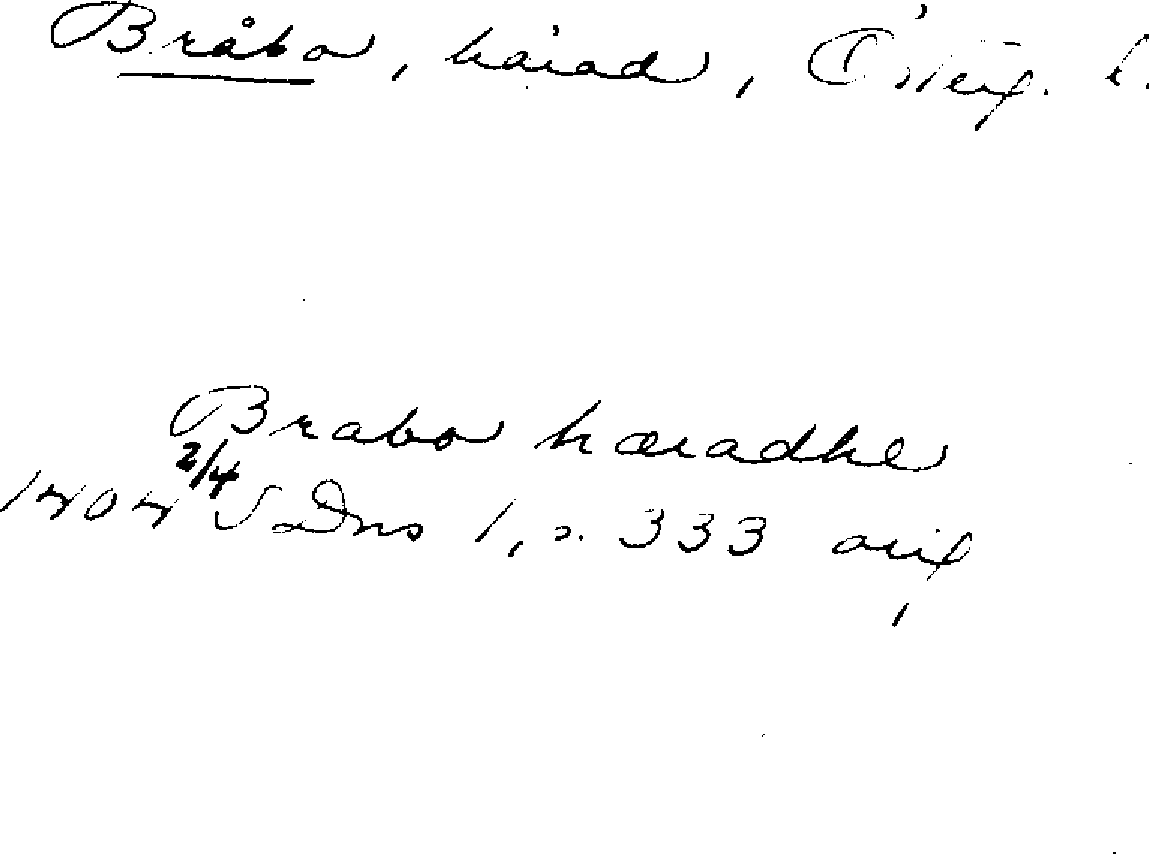 Bråbo, härad, Österg. l.
Brabo hæradhe
1404 2/4 SDns 1, s. 333 orig